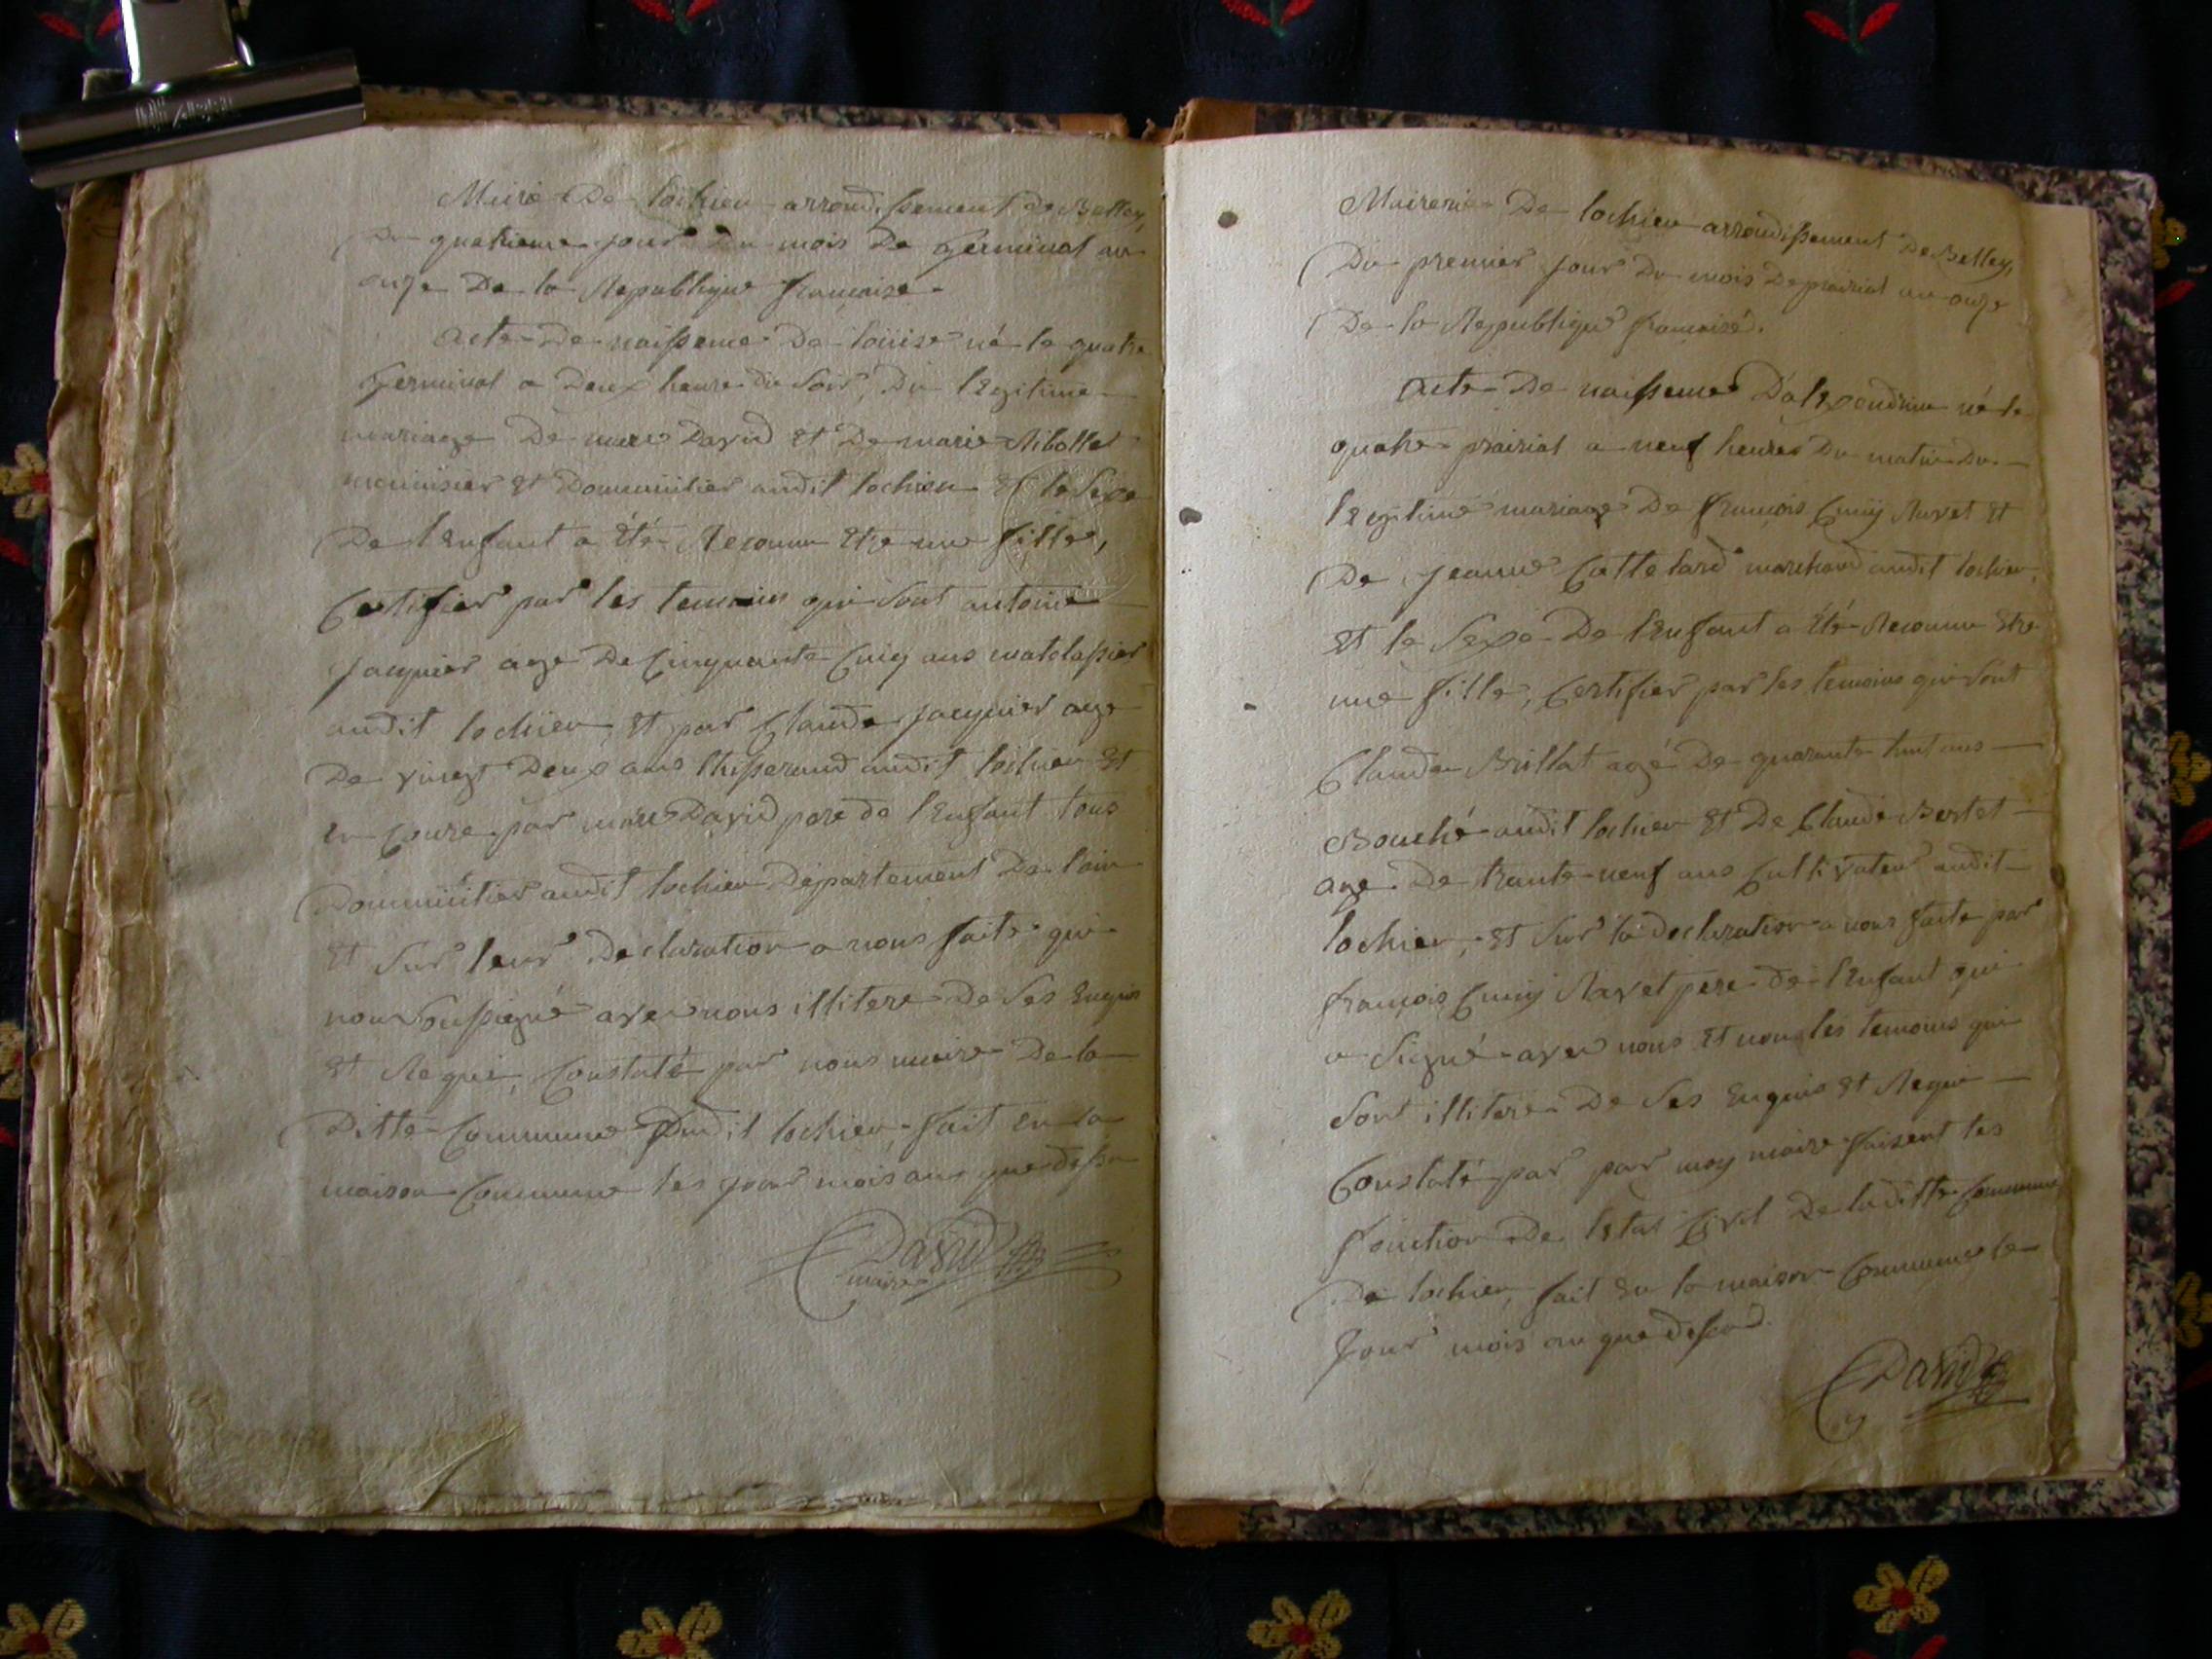 Mairie De lochieu arrondissement De Belley,
Du quatrieme jour Du mois De Germinal an
onze De la Republique francaise.
Acte De naissence De loüise né le quatre
Germinal a Deux heure du Soir, Du legitime
mariage De marc David Et De marie Ribollet
menuisier Et Dommicilier audit lochieu Et le Sexe
De lEnfant a Eté Reconnu Etre une fille,
Certifier par les temoins qui Sont antoine
Jacquier age De Cinquante Cinq ans matelassier
audit lochieu, Et par Claude Jacquier age
De vingt Deux ans thisserand audit lochieu Et
En Coure par marc David pere de lEnfant tous
Dommicilier audit lochieu Departement De lain
Et Sur leur Declaration a nous faite qui
nous Soussigné avec nous illitere De Ses Enquis
Et Requi, Constaté par nous maire De la
Ditte Commune Dudit lochieu, fait En la
maison Commune les jour mois ans que dessu
David
maire
Mairerie De lochieu arrondissement De Belley,
Du premier Jour Du mois De prairial an onze
De la Republique francaise.
Acte De naissence D'alexendrine né le
quatre prairial a neuf heures Du matin Du
legitime mariage De francois Cuny Ravet Et
De Jeanne Cattelard marchand audit lochieu,
Et le Sexe De lEnfant a Eté Reconnu Etre
une fille, Certifier par les temoins qui Sont
Claude Brillat agé De quarante huit ans
Bouché audit lochieu Et De Claude Bertet
age De trante neuf ans Cultivateur audit
lochieu, Et Sur la declaration a nous faite par
francois Cuny Ravet pere de lEnfant qui
a Signé avec nous Et non les temoins qui
Sont illitere De Ses Enquis Et Requi
Constaté par par moy maire faisent les
fonction De letat Civil De laditte Commune
De lochieu, fait En la maison Commune le
Jour mois an que desSud.
David